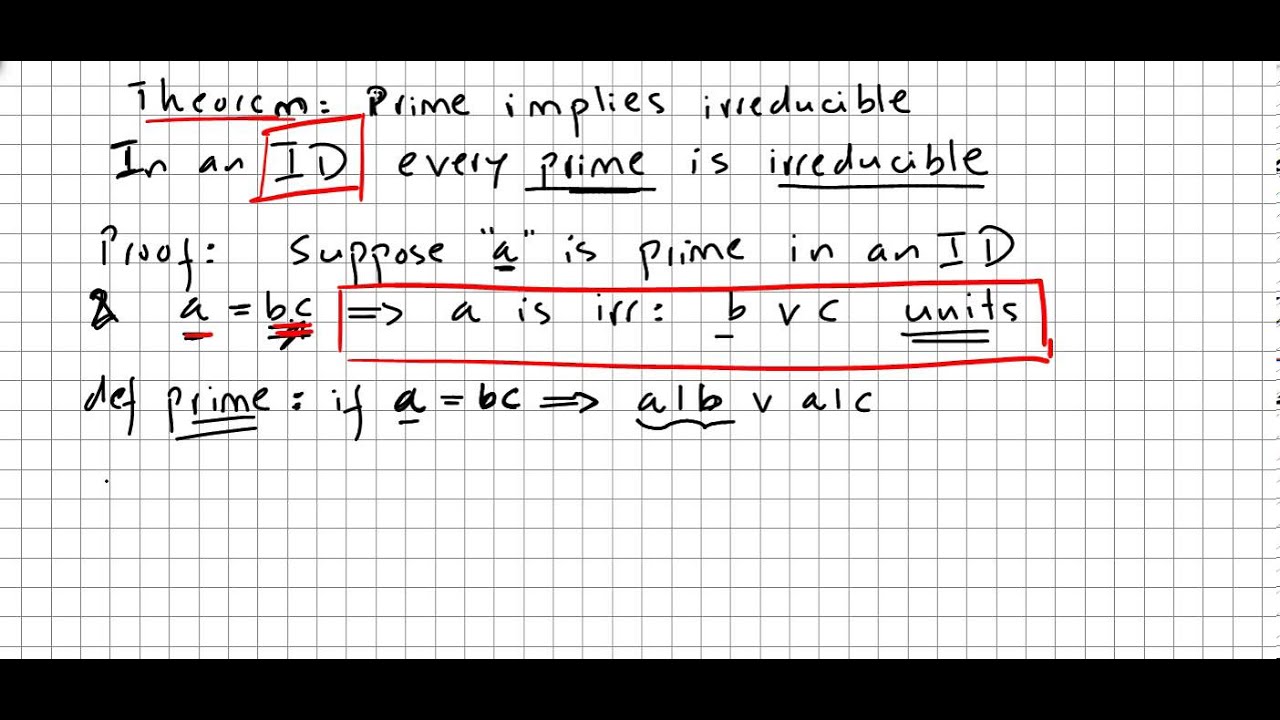 Theorem: Prime implies irreducible
In an ID every prime is irreducible
Proof: Suppose "a" is prime in an ID
& a = b.c => a is irr: b v c units
def prime: if a = bc => a|b v a|c